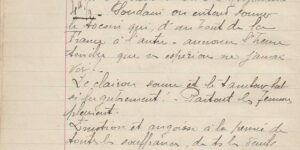 Soudain on entend sonner
le tocsin qui, d'un bout de la
France à l'autre - annonce l'heure
tendue que on espérion ne jamais
voir!
Le clairon sonne et le tambour bat
si fréquemment! - Partout les femmes
pleurent.
Emotion et angoisse à la pensée de
toutes les souffrances, de tous les deuils